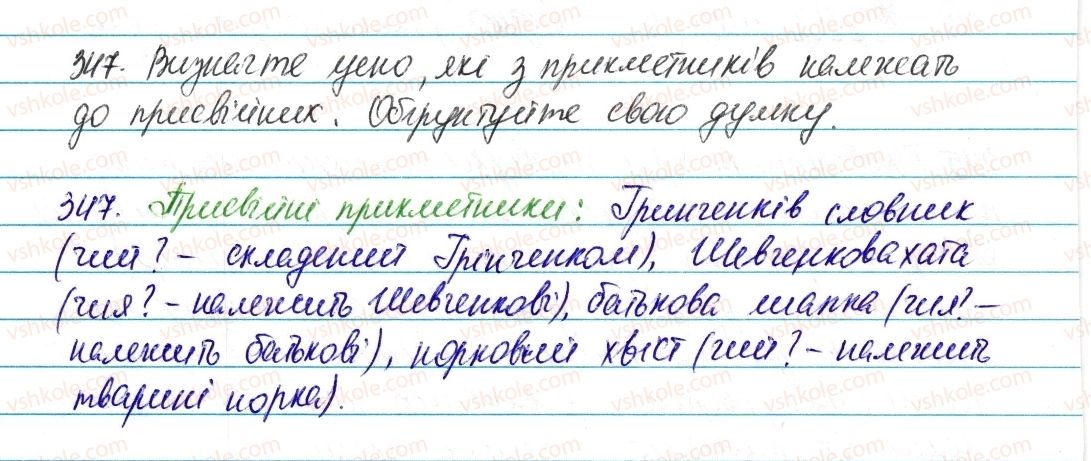 347. Визначте усно, які з прикметників належать
до присвійник. Обґрунтуйте свою думку.
347. Присвійні прикметники: Грінченків словник
(чий? – складений Грінченком), Шевченкова хата
(чия? – належить Шевченкові), батькова шапка (чия? –
належить батькові), норковий хвіст (чий? – належить
тварині норка).